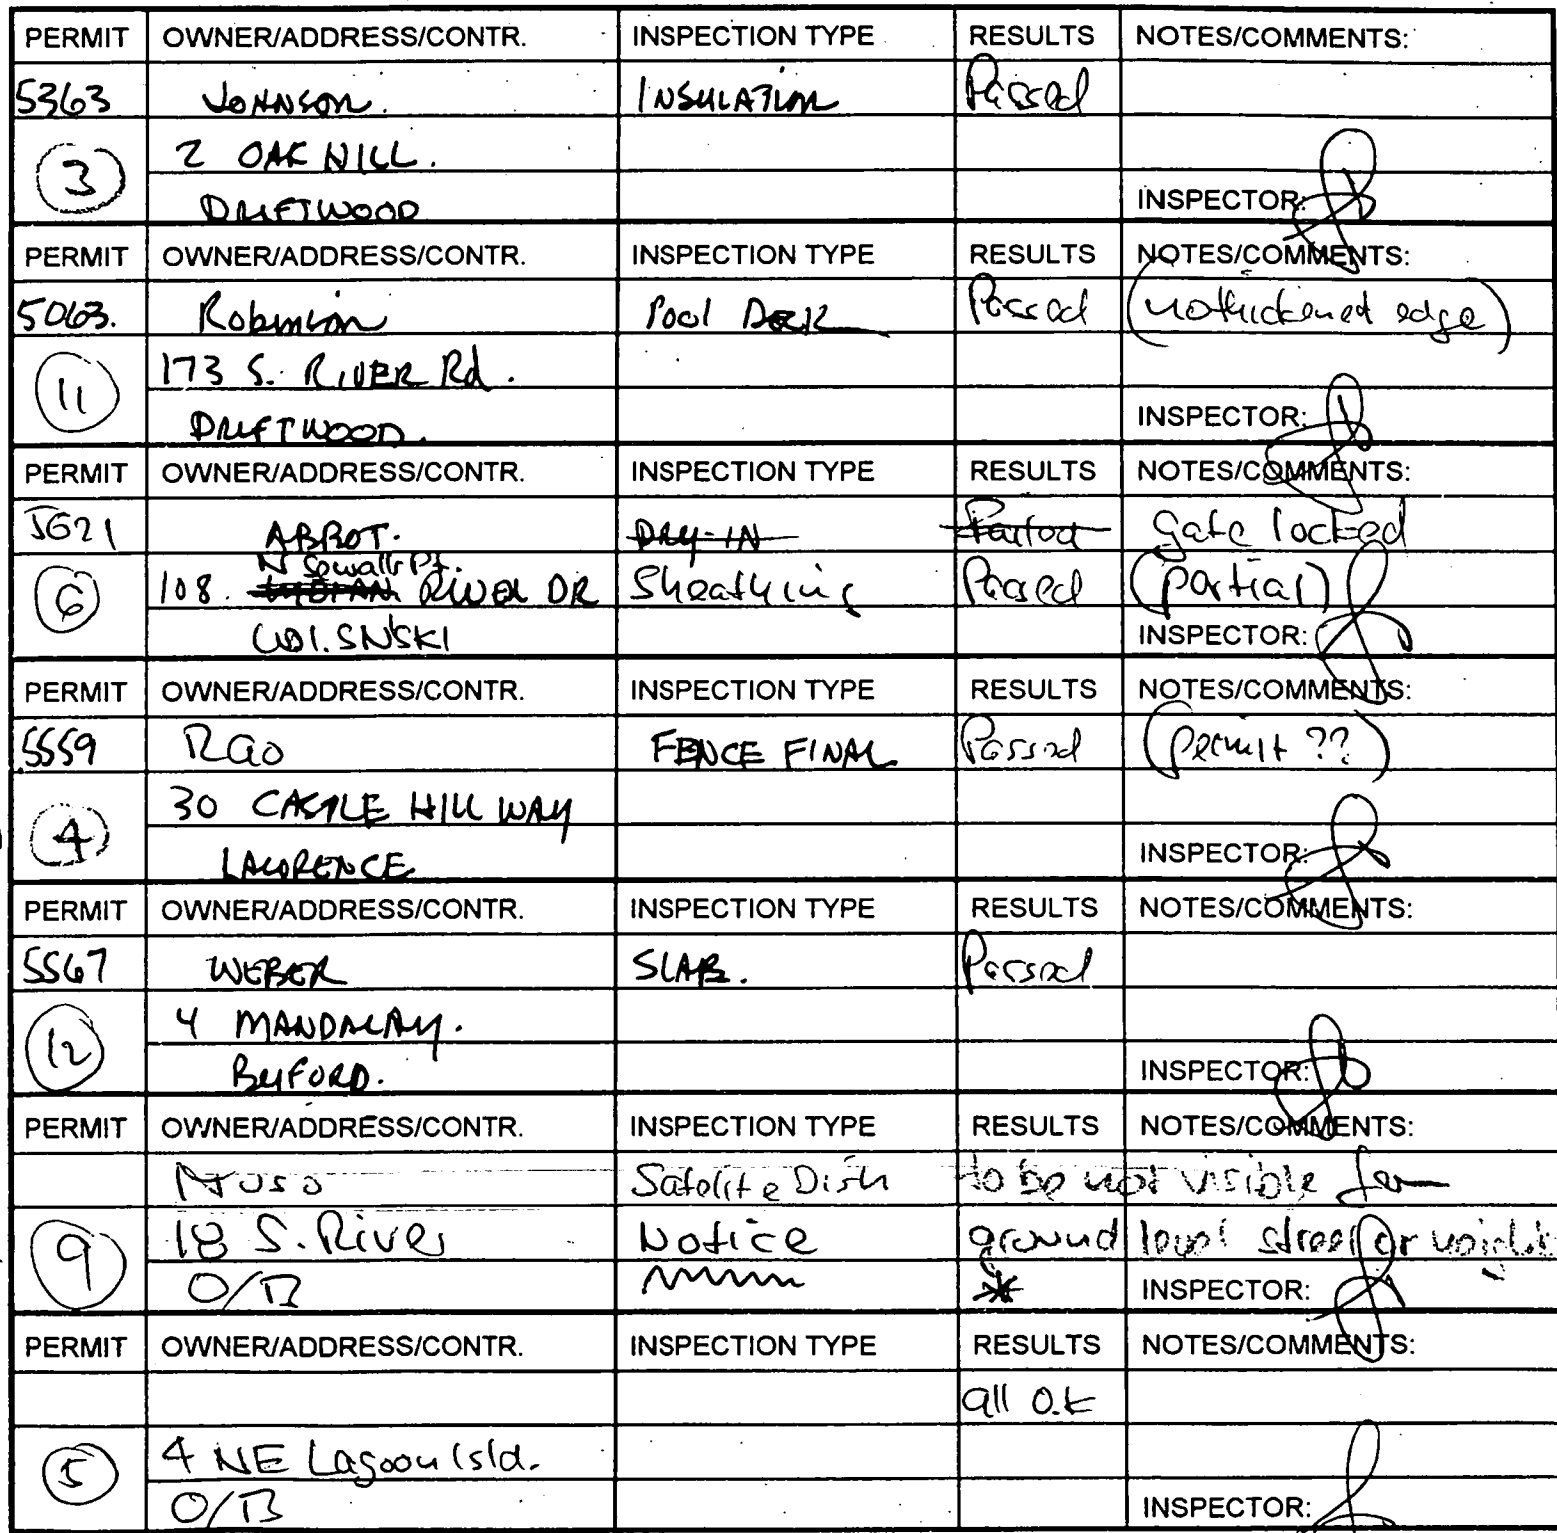 PERMIT OWNER/ADDRESS/CONTR. INSPECTION TYPE RESULTS NOTES/COMMENTS:
5363 JOHNSON. INSULATION Passed
3 2 OAK HILL.
DRIFTWOOD INSPECTOR:
PERMIT OWNER/ADDRESS/CONTR. INSPECTION TYPE RESULTS NOTES/COMMENTS:
5063. Robinson Pool Deck Passed (no thickened edge)
11 173 S. RIVER Rd.
DRIFTWOOD. INSPECTOR:
PERMIT OWNER/ADDRESS/CONTR. INSPECTION TYPE RESULTS NOTES/COMMENTS:
5621 ABBOT. DRY-IN Failed gate locked
N Sewalls Pt.
6 108. INDIAN RIVER DR Sheathing Passed (partial)
INSPECTOR:
PERMIT OWNER/ADDRESS/CONTR. INSPECTION TYPE RESULTS NOTES/COMMENTS:
5559 Rao FENCE FINAL Passed (permit ??)
4 30 CASTLE HILL WAY
LAWRENCE INSPECTOR:
PERMIT OWNER/ADDRESS/CONTR. INSPECTION TYPE RESULTS NOTES/COMMENTS:
5567 WEBER SLAB. Passed
12 4 MANDALAY.
BUFORD. INSPECTOR:
PERMIT OWNER/ADDRESS/CONTR. INSPECTION TYPE RESULTS NOTES/COMMENTS:
Satelite Dish to be not visible
9 18 S. River Notice ground level street or
O/B * INSPECTOR:
PERMIT OWNER/ADDRESS/CONTR. INSPECTION TYPE RESULTS NOTES/COMMENTS:
all O.K
5 4 NE Lagoon Isld.
O/B INSPECTOR: